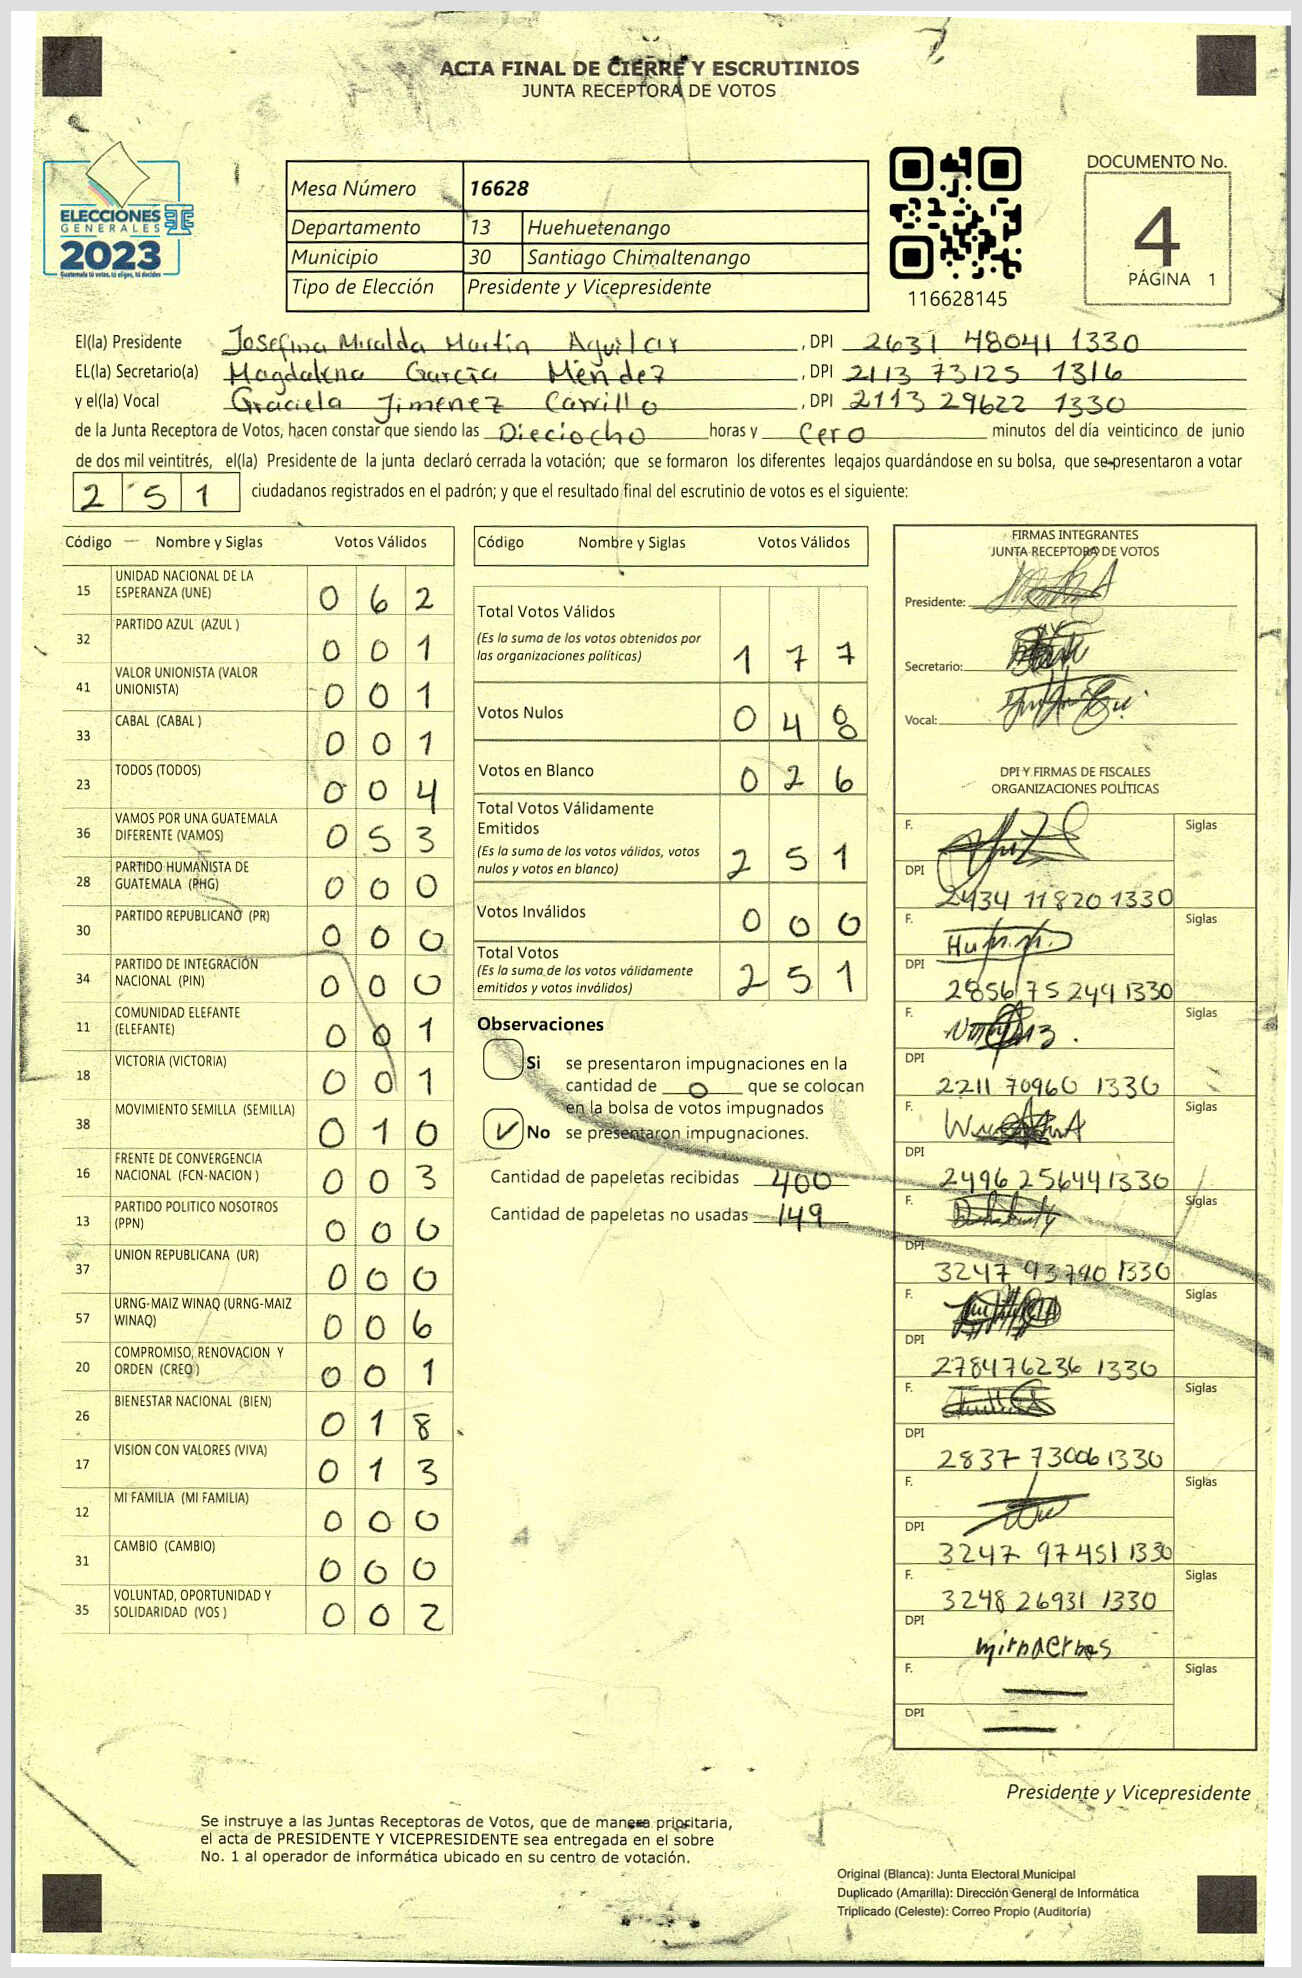 ACTA FINAL DE CIERRE Y ESCRUTINIOS
JUNTA RECEPTORA DE VOTOS
ELECCIONES
GENERALES
2023
Guatemala tú votas, tú eliges, tú decides
Mesa Número 16628
Departamento 13 Huehuetenango
Municipio 30 Santiago Chimaltenango
Tipo de Elección Presidente y Vicepresidente
116628145
DOCUMENTO No.
4
PÁGINA 1
El(la) Presidente Josefina Miralda Martin Aguilar , DPI 2631 48041 1330
EL(la) Secretario(a) Magdalena García Méndez , DPI 2113 73125 1316
y el(la) Vocal Graciela Jiménez Carrillo , DPI 2113 29622 1330
de la Junta Receptora de Votos, hacen constar que siendo las Dieciocho horas y Cero minutos del día veinticinco de junio
de dos mil veintitrés, el(la) Presidente de la junta declaró cerrada la votación; que se formaron los diferentes legajos guardándose en su bolsa, que se presentaron a votar
2 5 1 ciudadanos registrados en el padrón; y que el resultado final del escrutinio de votos es el siguiente:
Código Nombre y Siglas Votos Válidos
15 UNIDAD NACIONAL DE LA
ESPERANZA (UNE) 0 6 2
32 PARTIDO AZUL (AZUL ) 0 0 1
41 VALOR UNIONISTA (VALOR
UNIONISTA) 0 0 1
33 CABAL (CABAL ) 0 0 1
23 TODOS (TODOS) 0 0 4
36 VAMOS POR UNA GUATEMALA
DIFERENTE (VAMOS) 0 5 3
28 PARTIDO HUMANISTA DE
GUATEMALA (PHG) 0 0 0
30 PARTIDO REPUBLICANO (PR) 0 0 0
34 PARTIDO DE INTEGRACIÓN
NACIONAL (PIN) 0 0 0
11 COMUNIDAD ELEFANTE
(ELEFANTE) 0 0 1
18 VICTORIA (VICTORIA) 0 0 1
38 MOVIMIENTO SEMILLA (SEMILLA) 0 1 0
16 FRENTE DE CONVERGENCIA
NACIONAL (FCN-NACION ) 0 0 3
13 PARTIDO POLITICO NOSOTROS
(PPN) 0 0 0
37 UNION REPUBLICANA (UR) 0 0 0
57 URNG-MAIZ WINAQ (URNG-MAIZ
WINAQ) 0 0 6
20 COMPROMISO, RENOVACION Y
ORDEN (CREO ) 0 0 1
26 BIENESTAR NACIONAL (BIEN) 0 1 8
17 VISION CON VALORES (VIVA) 0 1 3
12 MI FAMILIA (MI FAMILIA) 0 0 0
31 CAMBIO (CAMBIO) 0 0 0
35 VOLUNTAD, OPORTUNIDAD Y
SOLIDARIDAD (VOS ) 0 0 2
Código Nombre y Siglas Votos Válidos
Total Votos Válidos
(Es la suma de los votos obtenidos por
las organizaciones políticas) 1 7 7
Votos Nulos 0 4 8
Votos en Blanco 0 2 6
Total Votos Válidamente
Emitidos
(Es la suma de los votos válidos, votos
nulos y votos en blanco) 2 5 1
Votos Inválidos 0 0 0
Total Votos
(Es la suma de los votos válidamente
emitidos y votos inválidos) 2 5 1
Observaciones
Si se presentaron impugnaciones en la
cantidad de 0 que se colocan
en la bolsa de votos impugnados
No se presentaron impugnaciones.
Cantidad de papeletas recibidas 400
Cantidad de papeletas no usadas 149
FIRMAS INTEGRANTES
JUNTA RECEPTORA DE VOTOS
Presidente:
Secretario:
Vocal:
DPI Y FIRMAS DE FISCALES
ORGANIZACIONES POLÍTICAS
F. Siglas
DPI
2434 11820 1330
F. Siglas
DPI
2856 75 249 1330
F. Siglas
DPI
2211 70960 1330
F. Siglas
DPI
2496 25644 1330
F. Siglas
DPI
3247 93790 1330
F. Siglas
DPI
278476236 1330
F. Siglas
DPI
2837 73006 1330
F. Siglas
DPI
3247 97451 1330
F. Siglas
3248 26931 1330
DPI
F. Siglas
DPI
Presidente y Vicepresidente
Se instruye a las Juntas Receptoras de Votos, que de manera prioritaria,
el acta de PRESIDENTE Y VICEPRESIDENTE sea entregada en el sobre
No. 1 al operador de informática ubicado en su centro de votación.
Original (Blanca): Junta Electoral Municipal
Duplicado (Amarilla): Dirección General de Informática
Triplicado (Celeste): Correo Propio (Auditoría)